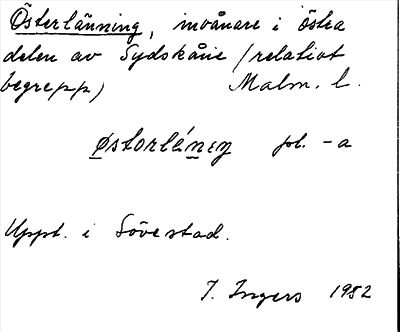 Österlänning, invånare i östra
delen av Sydskåne (relativt
begrepp) Malm. l.
østorlénɪŋ pl. -a
Uppt. i Sövestad.
I. Ingers 1952